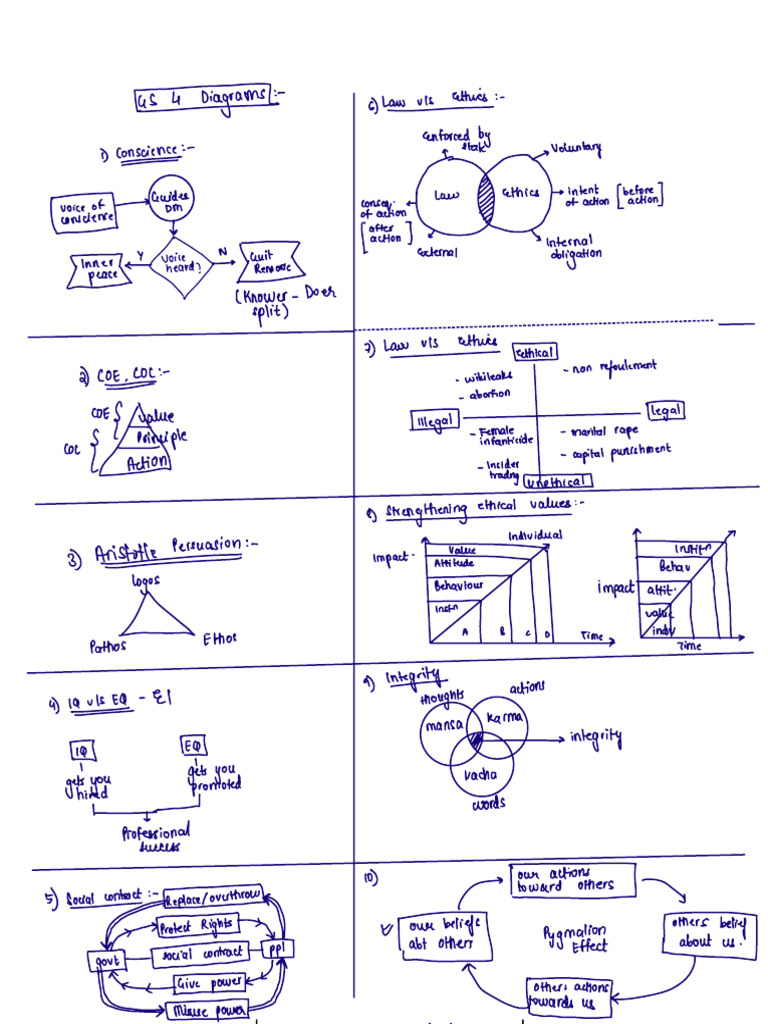 GS 4 Diagrams:-
1) Conscience:-
Voice of
conscience
Guides
DM
Voice
heard?
Y
N
Inner
peace
Guilt
Remorse
(Knower - Doer
split)
2) COE, COC:-
COE
COC
Value
Principle
Action
3) Aristotle Persuasion:-
Logos
Pathos
Ethos
4) IQ v/s EQ - EI
IQ
EQ
gets you
hired
gets you
promoted
Professional
success
5) Social contract:-
Replace/overthrow
Protect Rights
govt
social contract
ppl
Give power
Misuse power
6) Law v/s Ethics:-
enforced by
state
Voluntary
Law
Ethics
conseq.
of action
[after
action]
Intent
of action [before
action]
External
Internal
obligation
7) Law v/s Ethics
Ethical
- wikileaks
- abortion
- non refoulement
Illegal
Legal
- Female
infanticide
- Insider
trading
- marital rape
- capital punishment
Unethical
8) Strengthening ethical values:-
Individual
Impact
Value
Attitude
Behaviour
Instn
A
B
C
D
Time
Impact
Instn
Behav
attit.
value
indiv
Time
9) Integrity
thoughts
actions
mansa
karma
vacha
words
integrity
10)
our actions
toward others
our beliefs
abt others
Pygmalion
Effect
others belief
about us.
others actions
towards us